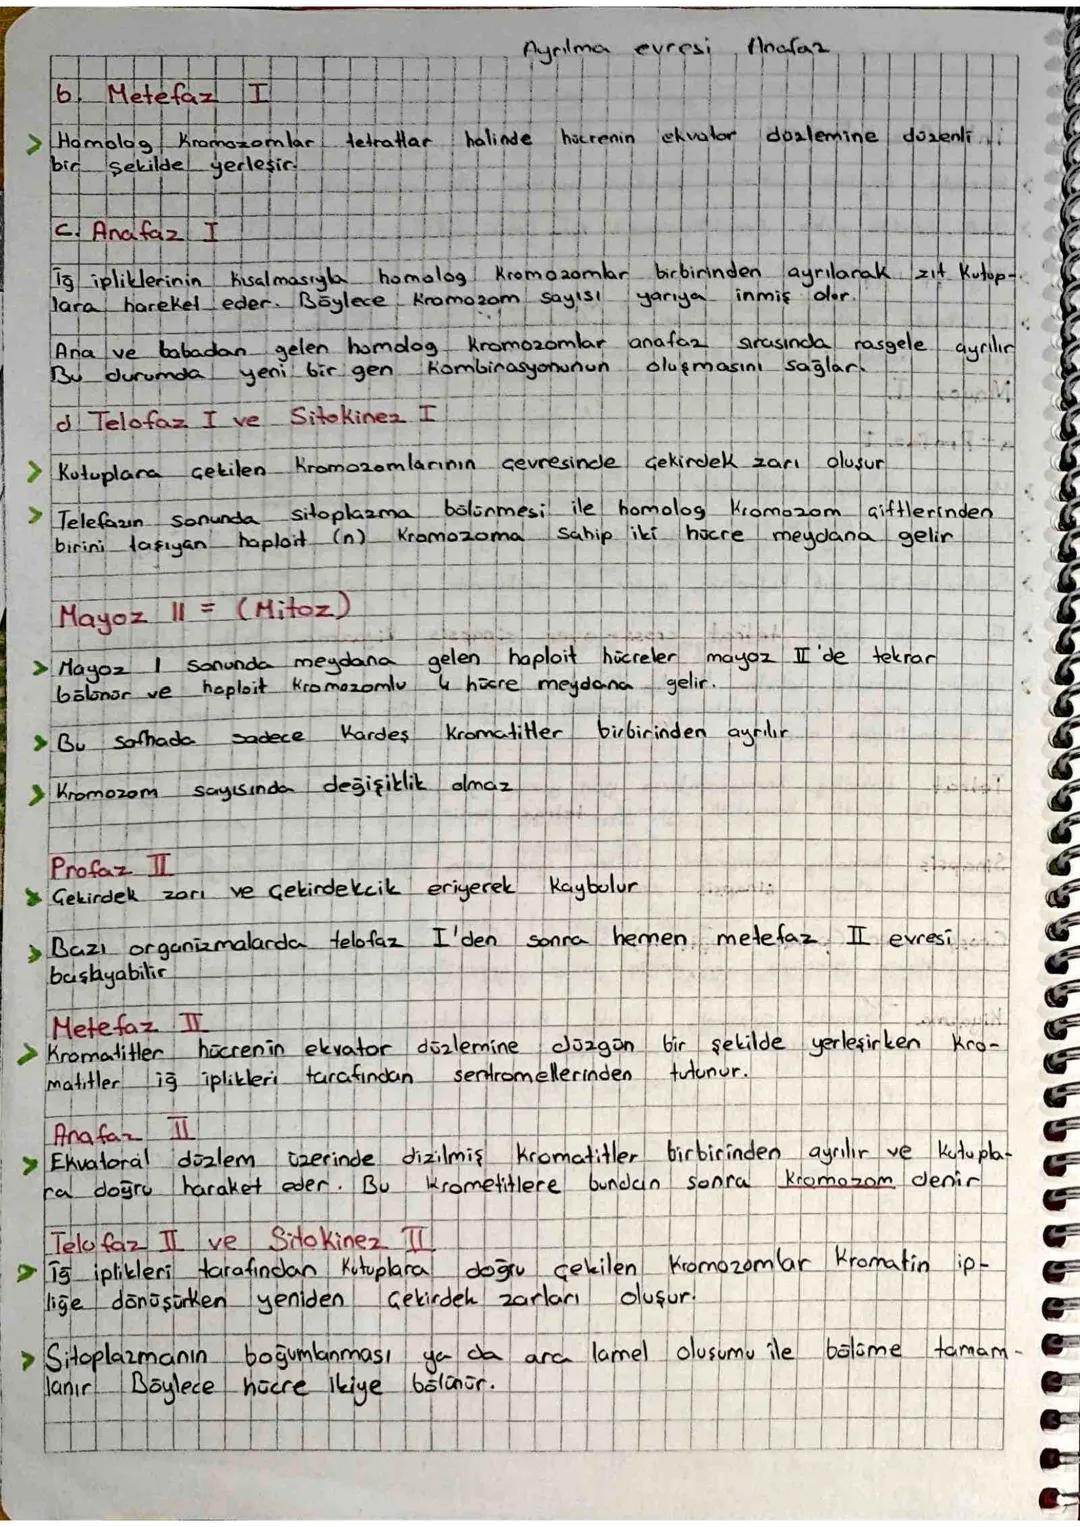 Ayrılma evresi Anafaz
b. Metefaz I
> Homolog Kromozomlar tetratlar halinde hücrenin ekvator düzlemine düzenli
bir şekilde yerleşir.
c. Anafaz I
İğ ipliklerinin kısalmasıyla homolog kromozomlar birbirinden ayrılarak zıt kutup-
lara hareket eder. Böylece kromozom sayısı yarıya inmiş olur.
Ana ve babadan gelen homolog kromozomlar anafaz sırasında rasgele ayrılır
Bu durumda yeni bir gen kombinasyonunun oluşmasını sağlar.
d Telofaz I ve Sitokinez I
> Kutuplara çekilen kromozomlarının çevresinde çekirdek zarı oluşur
> Telefazın sonunda sitoplazma bölünmesi ile homolog kromozom çiftlerinden
birini taşıyan haploit (n) kromozoma sahip iki hücre meydana gelir
Mayoz II = (Mitoz)
> Mayoz I sonunda meydana gelen haploit hücreler mayoz II'de tekrar
bölünür ve haploit kromozomlu 4 hücre meydana gelir.
> Bu safhada sadece Kardeş kromatitler birbirinden ayrılır
> Kromozom sayısında değişiklik olmaz
Profaz II
> Çekirdek zarı ve çekirdekcik eriyerek kaybolur
> Bazı organizmalarda telofaz I'den sonra hemen metefaz II evresi
başlayabilir
Metefaz II
> Kromatitler hücrenin ekvator düzlemine düzgün bir şekilde yerleşirken kro-
matitler iğ iplikleri tarafından sentromellerinden tutunur.
Anafaz II
> Ekvatoral düzlem üzerinde dizilmiş kromatitler birbirinden ayrılır ve kutupla-
ra doğru haraket eder. Bu krometitlere bundan sonra kromozom denir
Telofaz II ve Sitokinez II
> İğ iplikleri tarafından kutuplara doğru çekilen kromozomlar kromatin ip-
liğe dönüşürken yeniden çekirdek zarları oluşur.
> Sitoplazmanın boğumlanması ya da ara lamel oluşumu ile bölüme tamam-
lanır Böylece hücre ikiye bölünür.